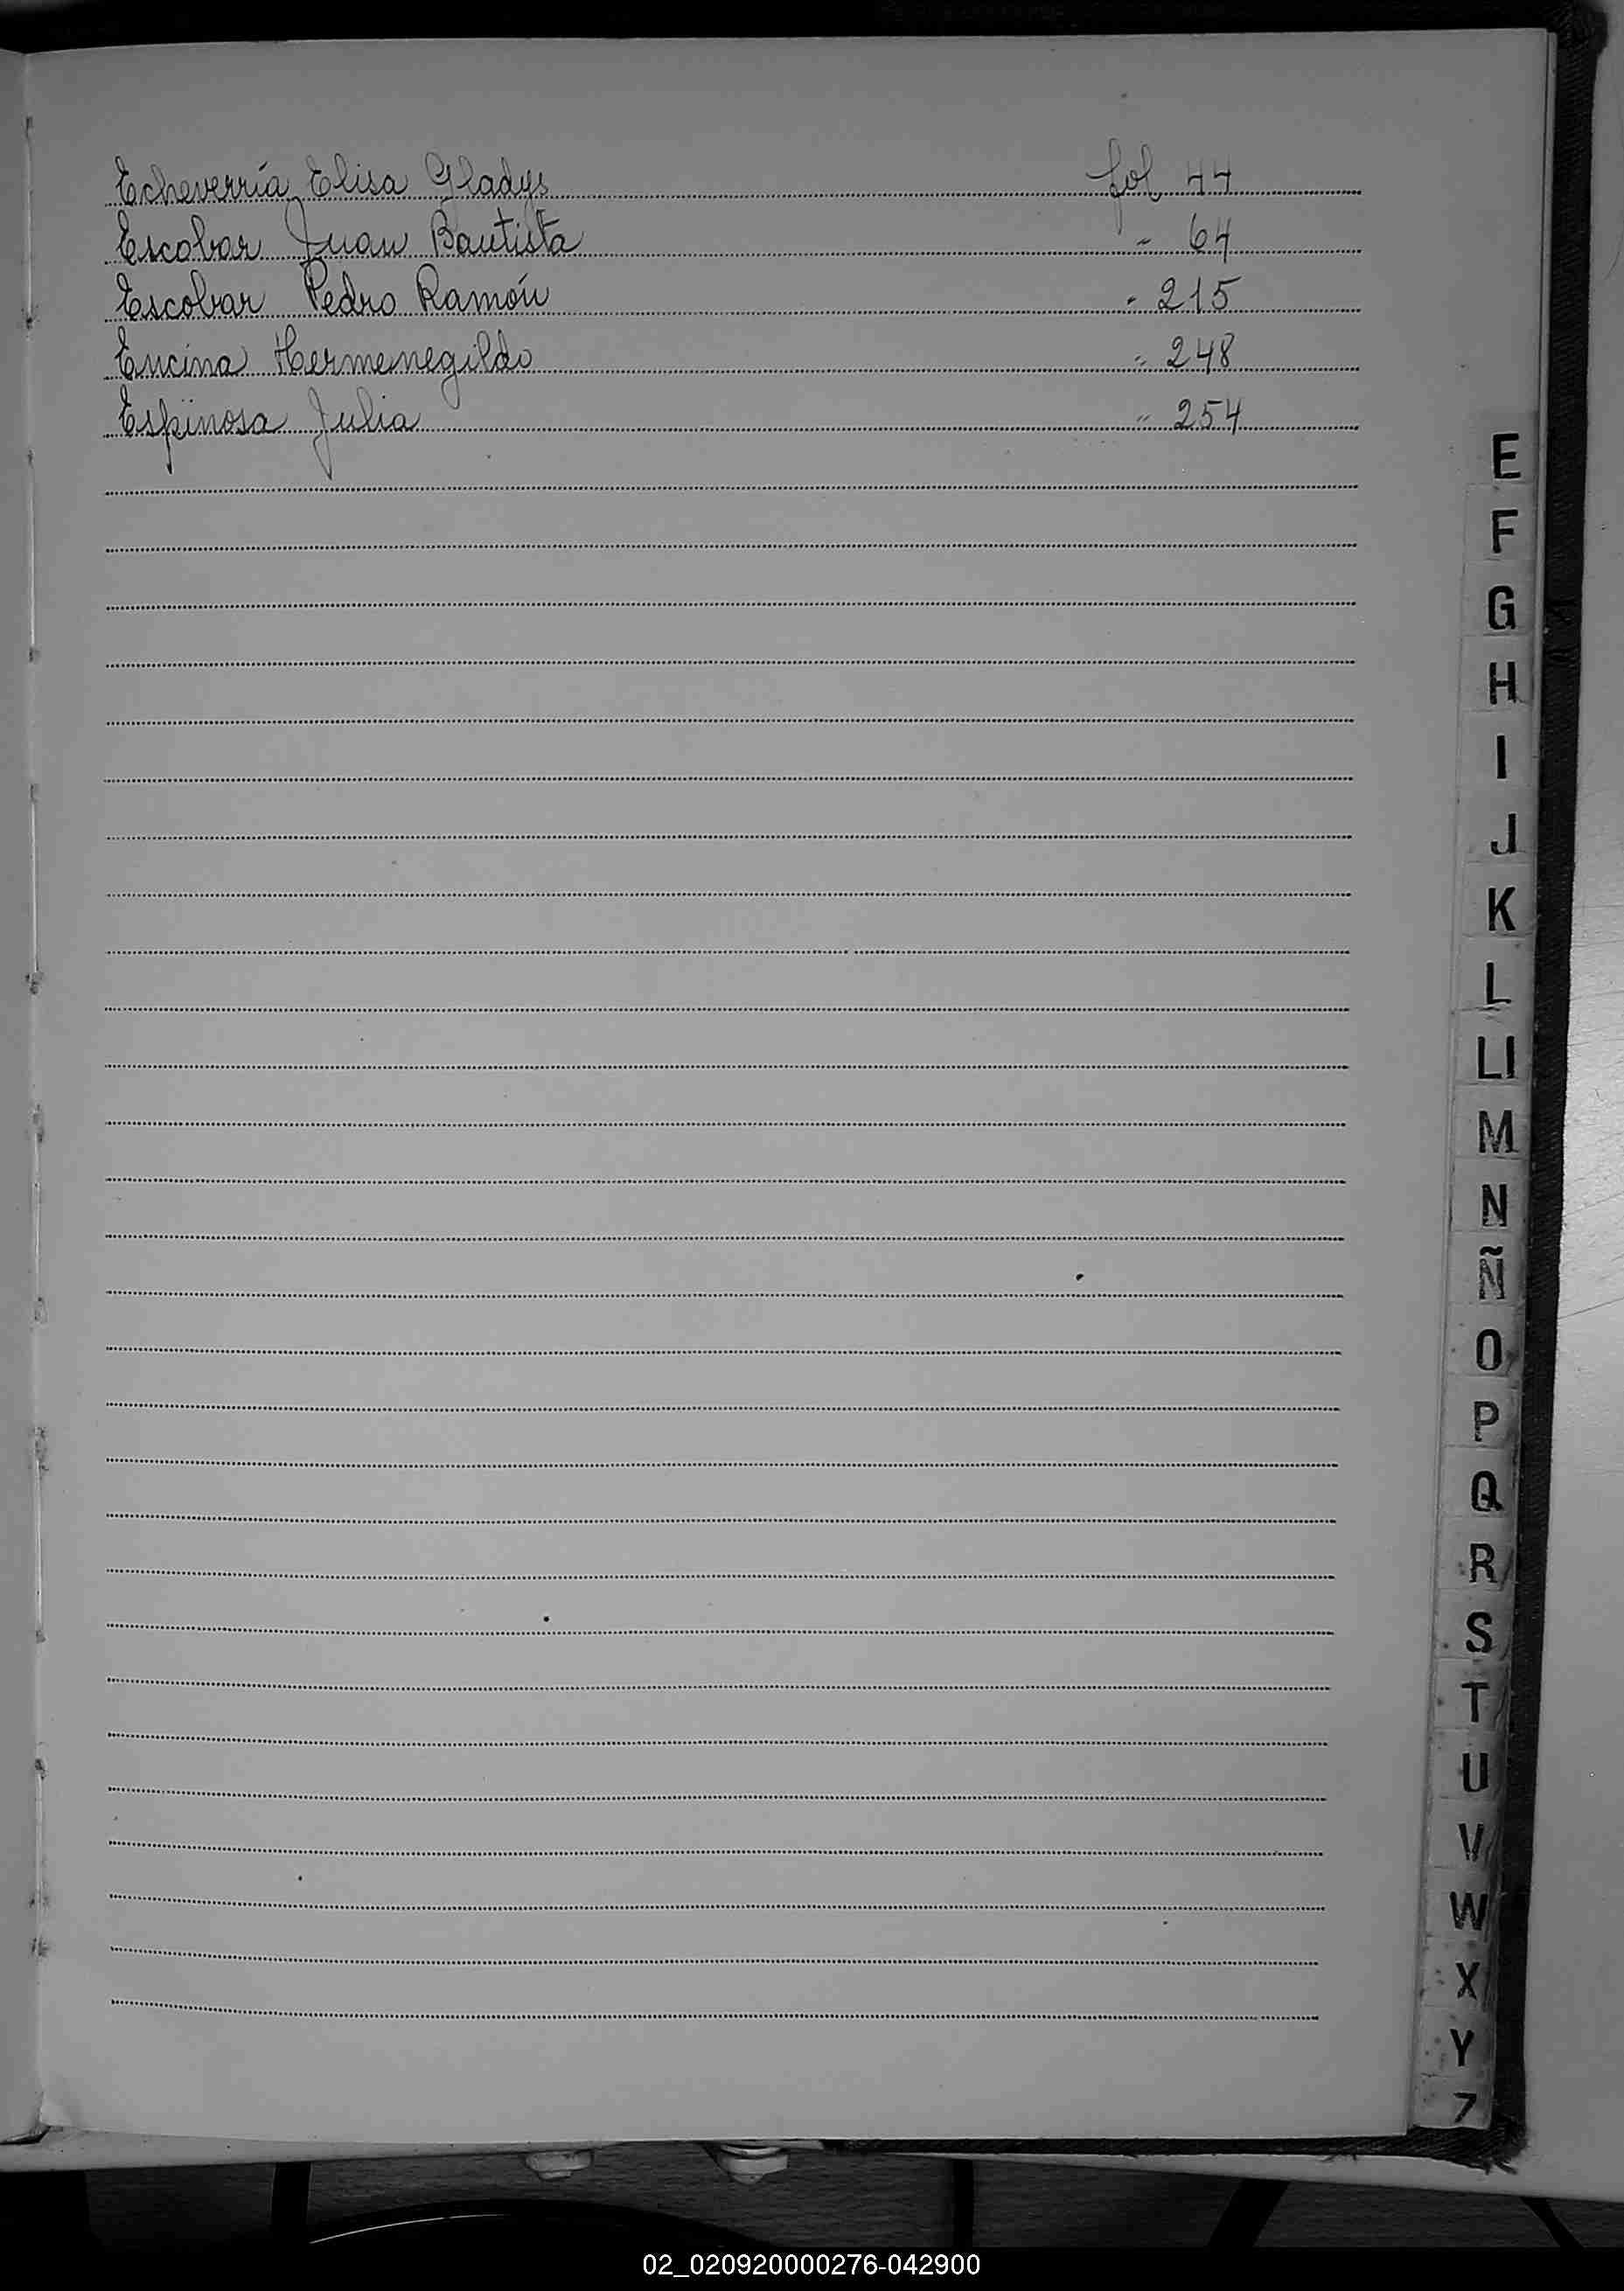 Echeverría Elisa Gladys fol 44
Escobar Juan Bautista " 64
Escobar Pedro Ramón " 215
Encina Hermenegildo " 248
Espinosa Julia " 254
E
F
G
H
I
J
K
L
Ll
M
N
Ñ
O
P
Q
R
S
T
U
V
W
X
Y
Z
02_020920000276-042900